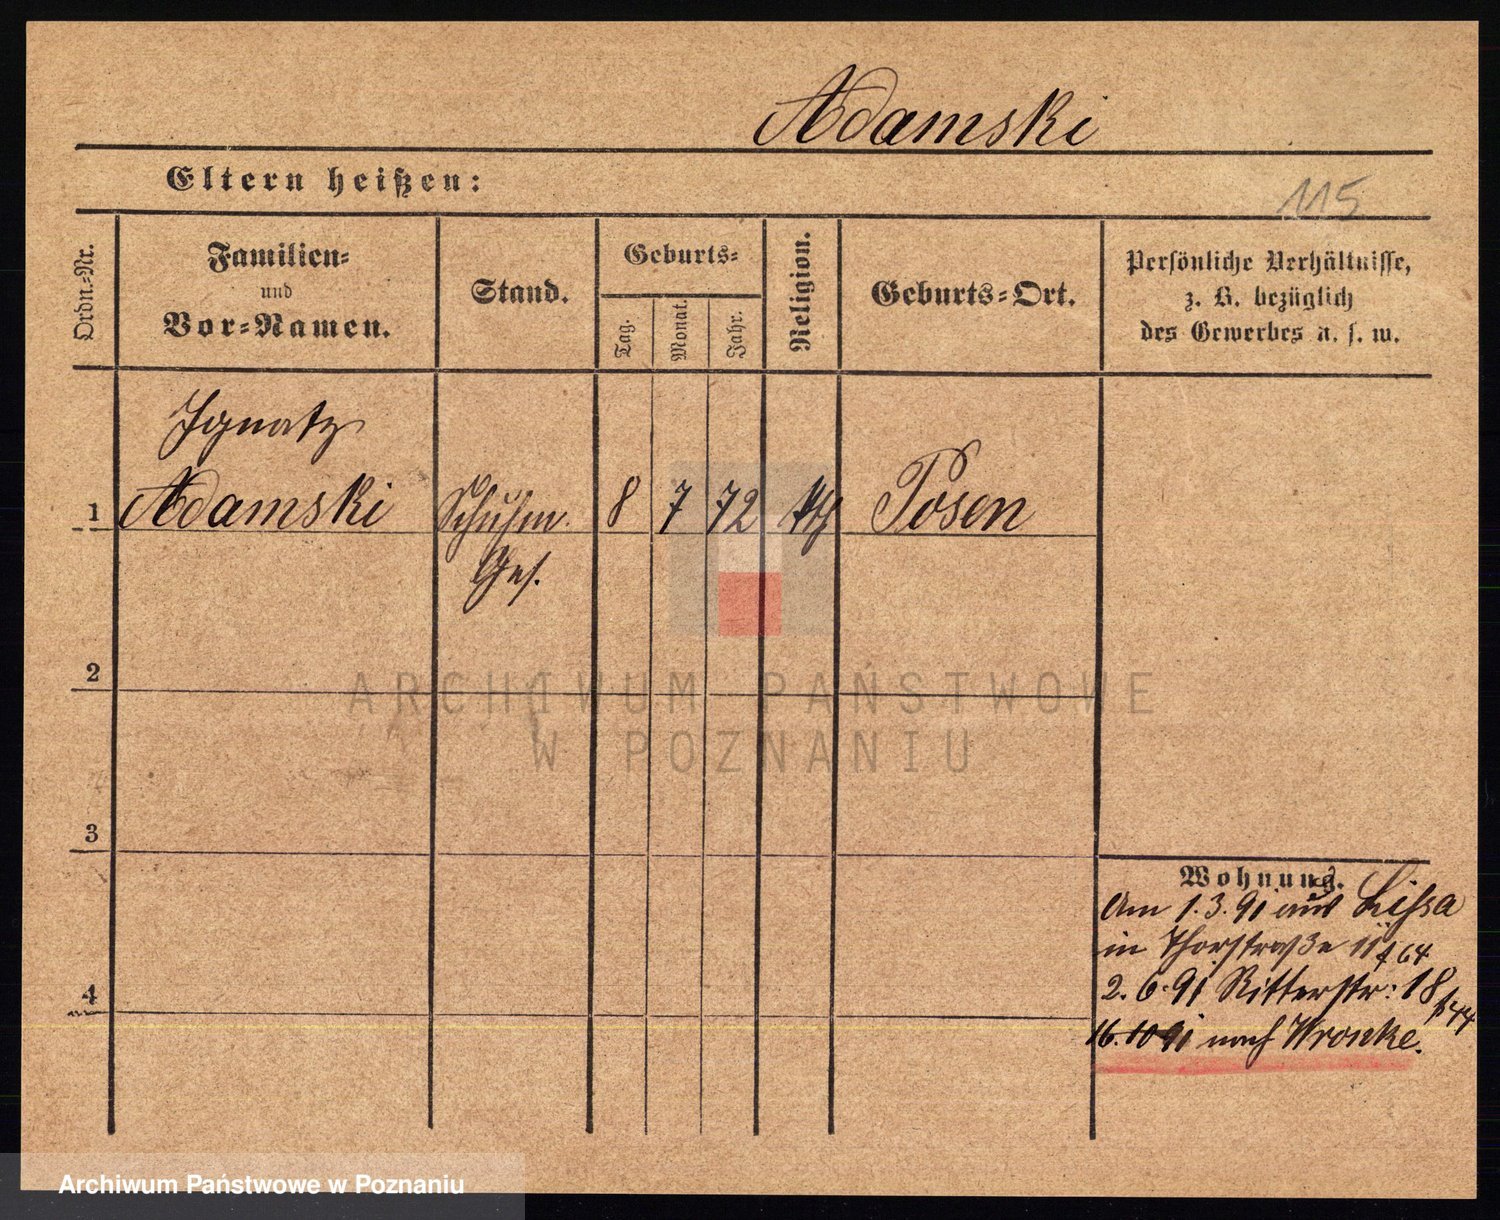 Adamski
Eltern heißen:
115
Ordn.-Nr.
Familien-
und
Vor-Namen.
Stand.
Geburts-
Tag.
Monat.
Jahr.
Religion.
Geburts-Ort.
Persönliche Verhältnisse,
z. B. bezüglich
des Gewerbes u. s. w.
Ignatz
1 Adamski Schuhm. 8 7 72 kth Posen
Ges.
2
ARCHIWUM PAŃSTWOWE
W POZNANIU
3
Wohnung.
Am 1.3.91 aus Lissa
in Thorstraße 11 f 64
4
2.6.91 Ritterstr: 18
f 44
16.10 91 nach Wronke.
Archiwum Państwowe w Poznaniu